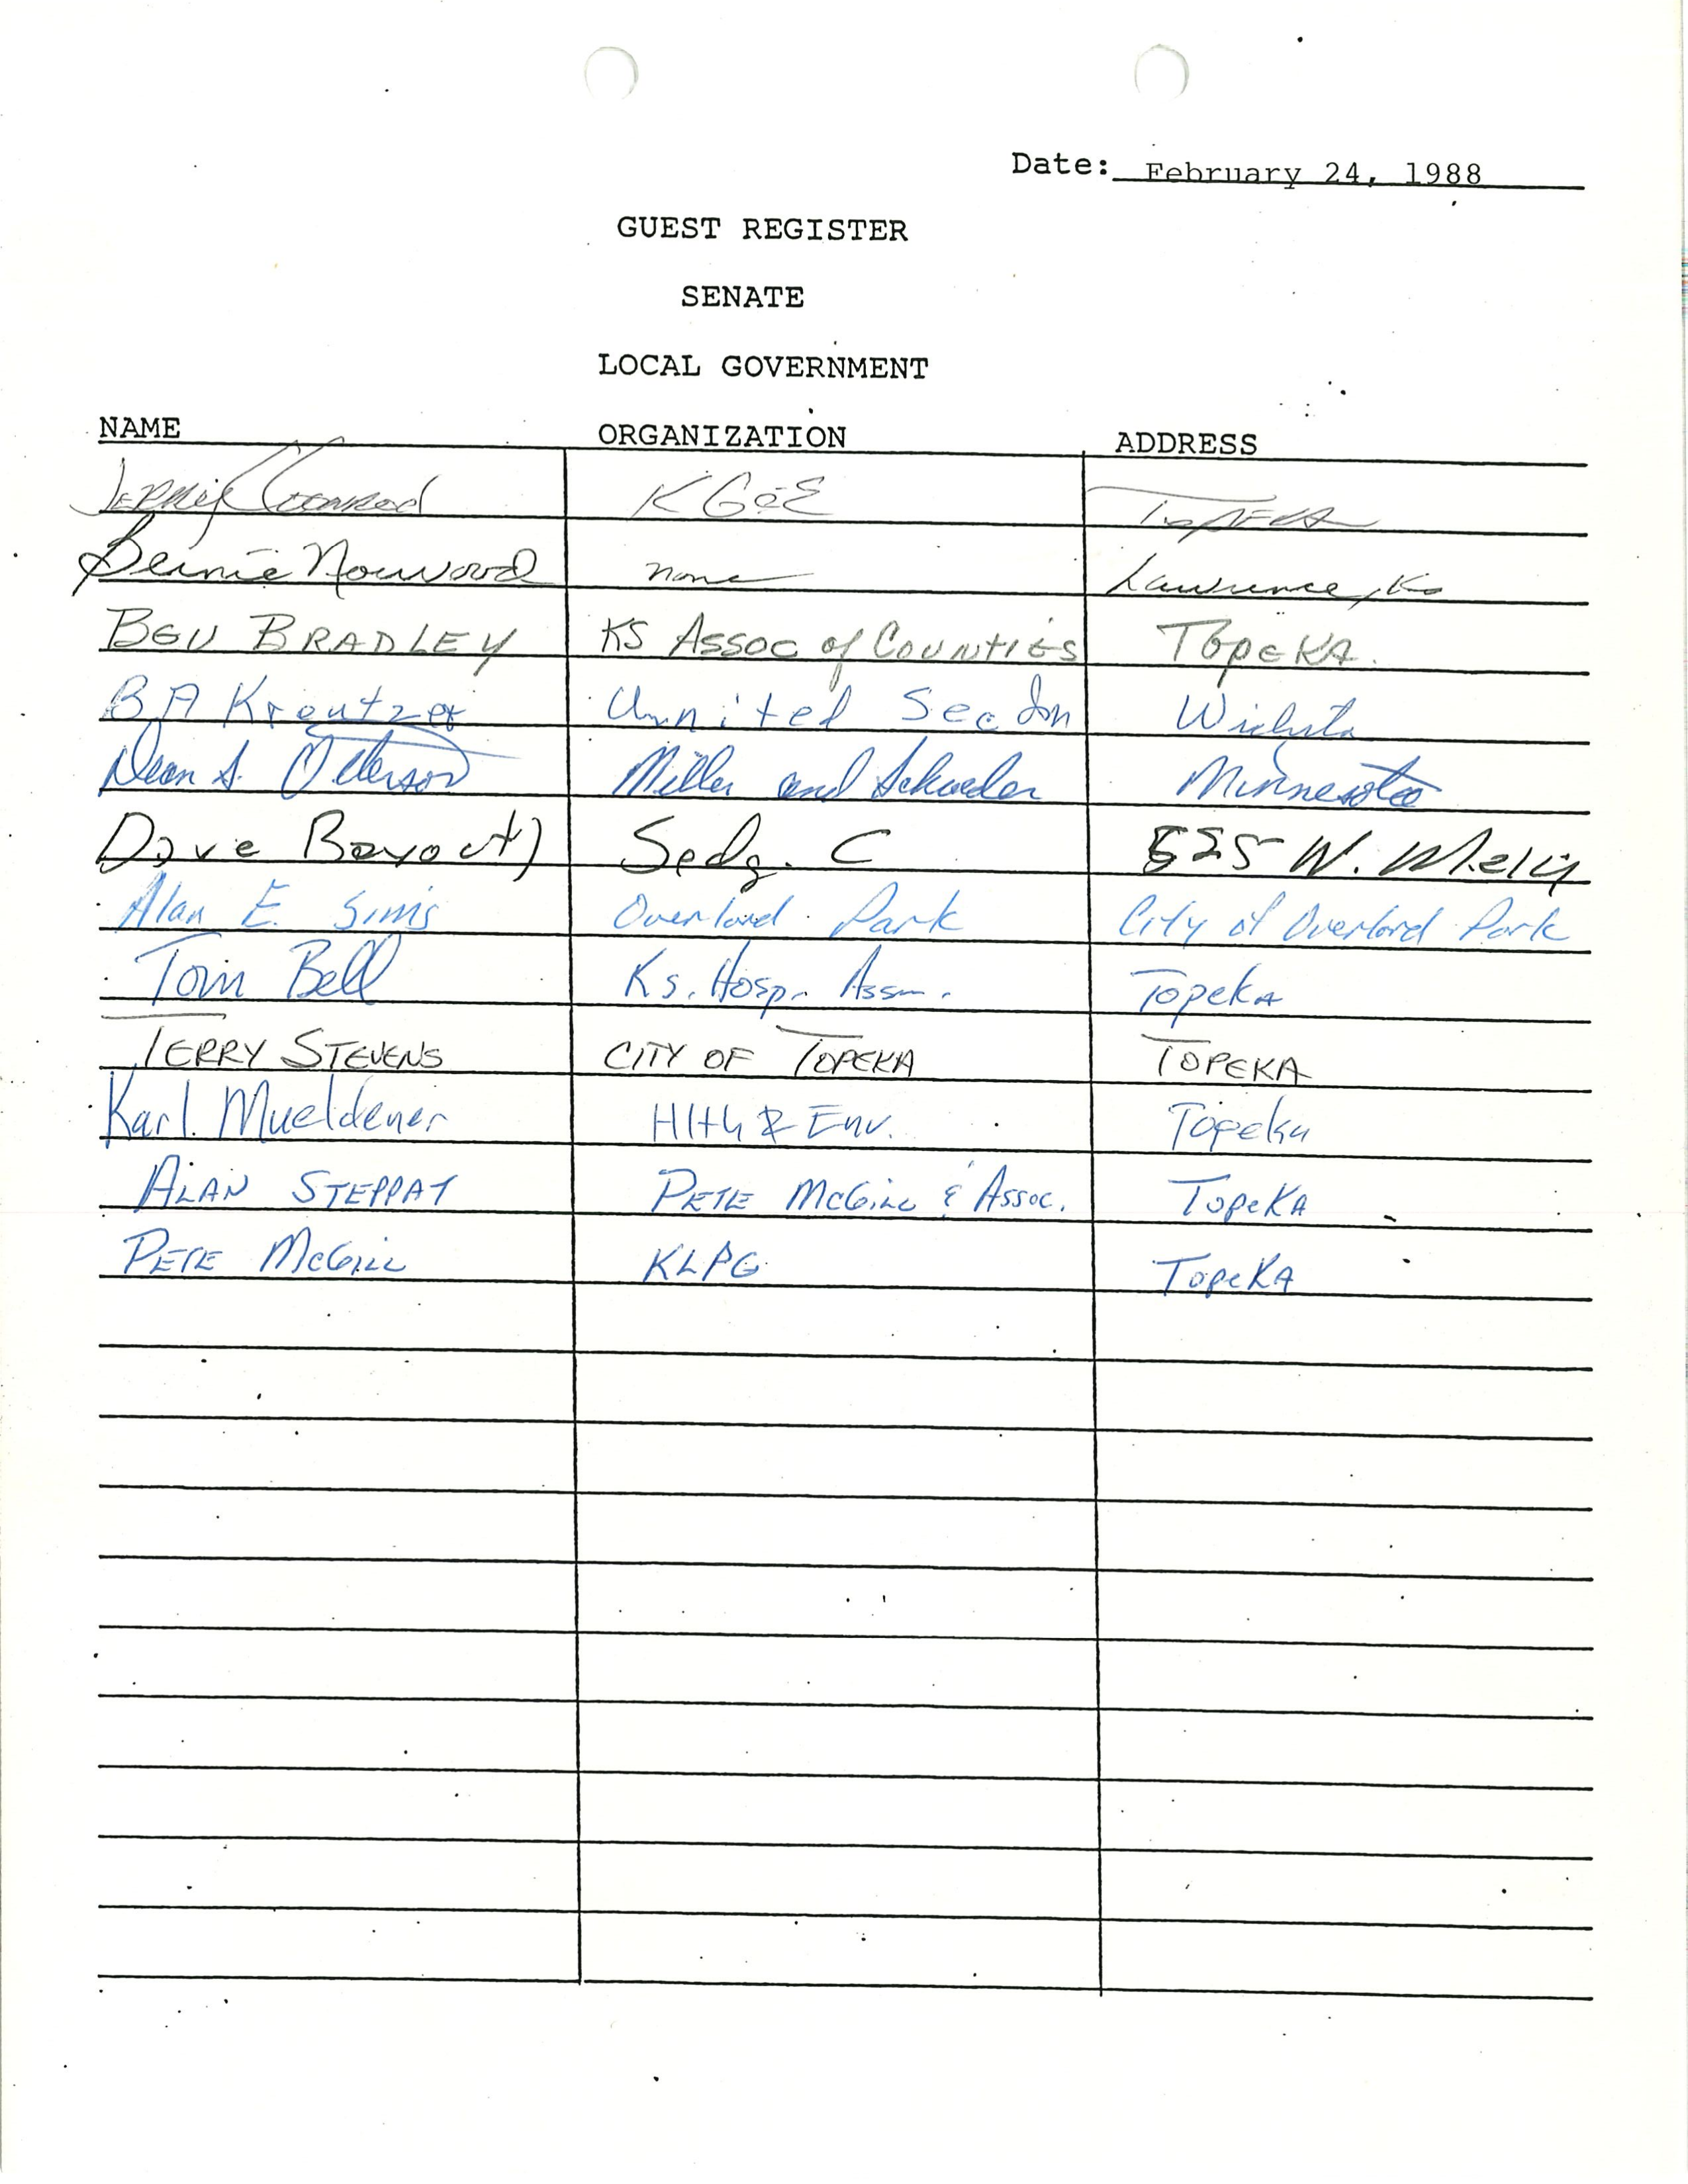 Date: February 24, 1988
GUEST REGISTER
SENATE
LOCAL GOVERNMENT
NAME ORGANIZATION ADDRESS
Conrad KG&E Topeka
Bernie Norwood none Lawrence, Ks
BEV BRADLEY KS Assoc of Counties Topeka
B A Kreutzer United Wichita
Dean S. Otterson Miller and Schroeder Minnesota
Dave Sedg. C 525 W.
Alan E. Sims Overland Park City of Overland Park
Tom Bell Ks. Hosp. Assn. Topeka
TERRY STEVENS CITY OF TOPEKA TOPEKA
Karl Mueldener Hlth & Env. Topeka
ALAN STEPPAT PETE McGILL & Assoc. TopeKA
PETE McGILL KLPG TopeKA